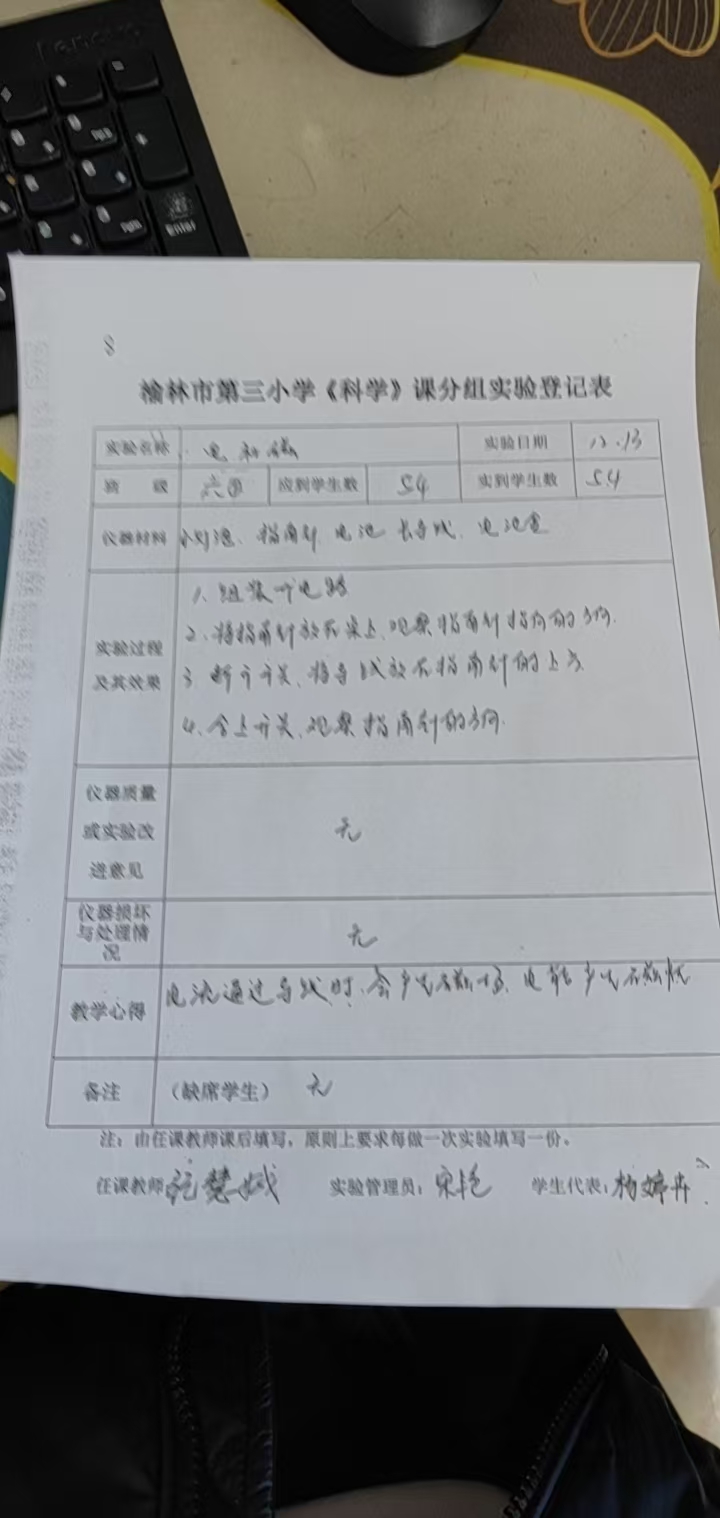 Lenovo
Enter
8
榆林市第三小学《科学》课分组实验登记表
实验名称 电和磁 实验日期 12.13
班 级 六④ 应到学生数 54 实到学生数 54
仪器材料 小灯泡、指南针 电池 长导线、电池盒
实验过程及其效果
1、组装个电路
2、将指南针放在桌上、观察指南针指向的方向.
3 断开开关、将导线放在指南针的上方
4、合上开关、观察指南针的方向.
仪器质量
或实验改
进意见
无
仪器损坏
与处理情
况
无
教学心得 电流通过导线时、会产生磁场、电能产生磁性
备注 (缺席学生) 无
注:由任课教师课后填写,原则上要求每做一次实验填写一份。
任课教师 慧娥 实验管理员:宋艳 学生代表:杨婷卉